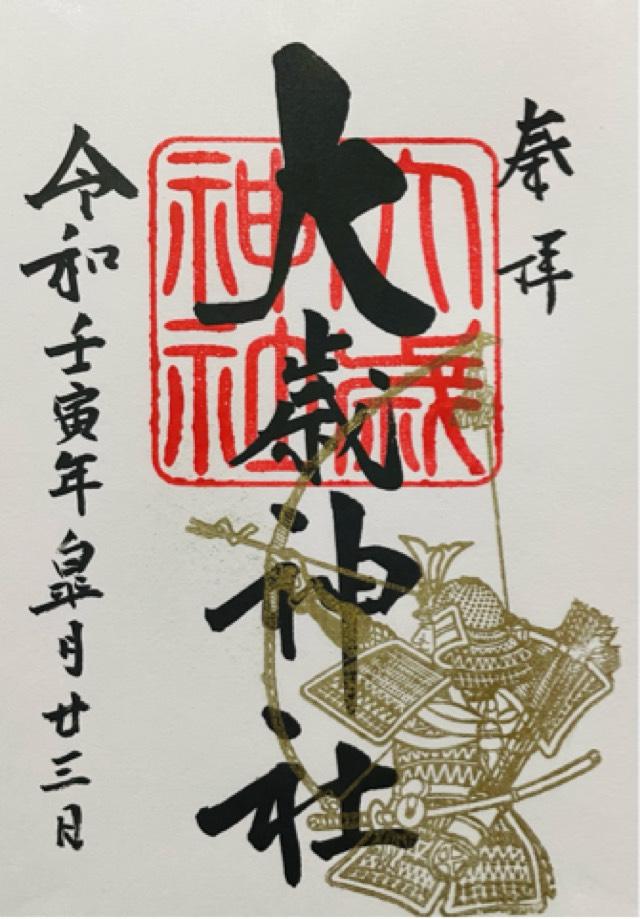 奉拝
大歳神社
大歳
神社
令和壬寅年皐月廿三日